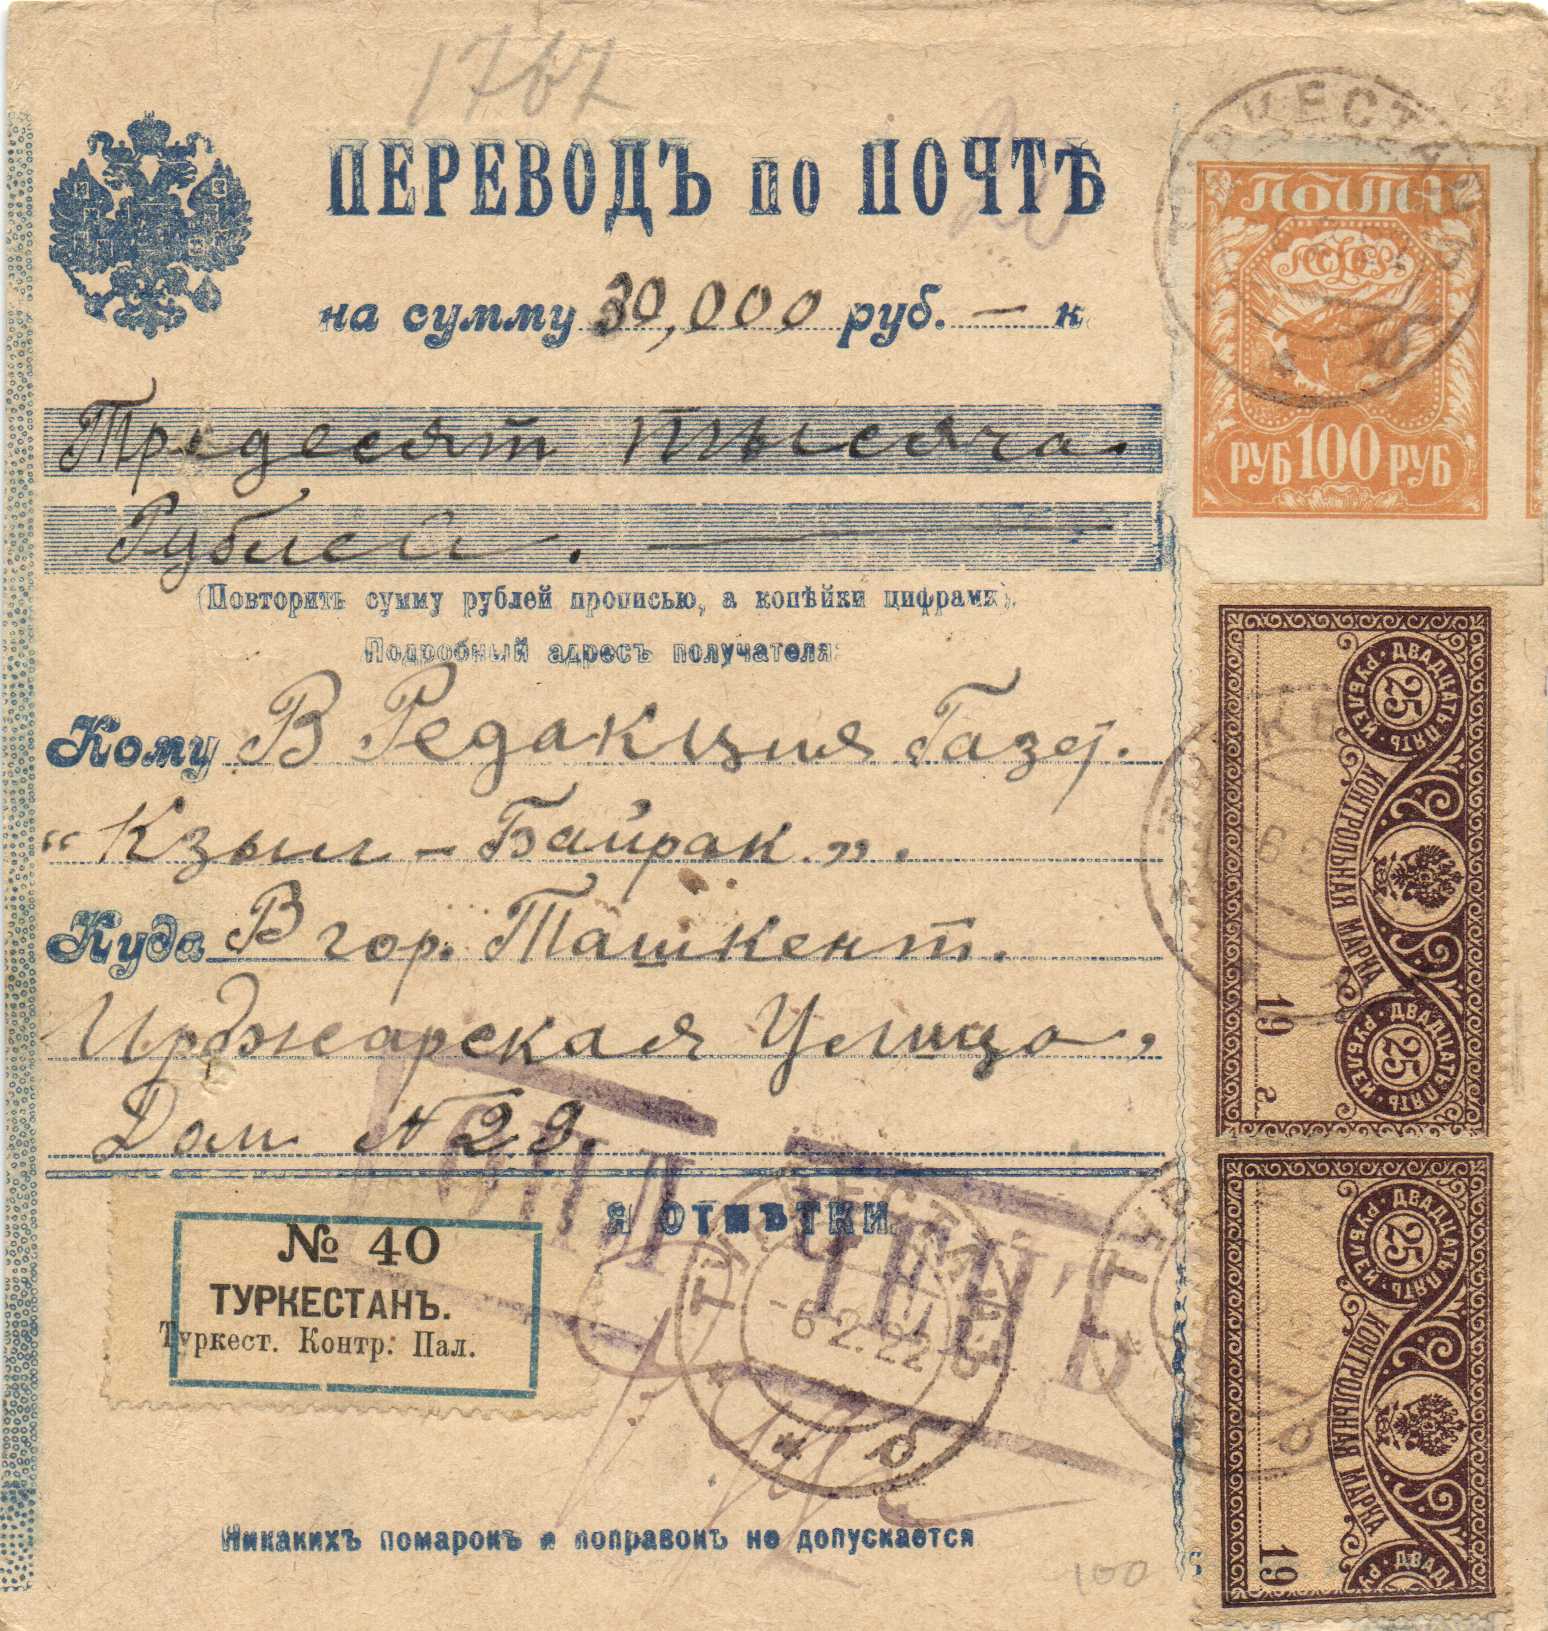 1767
ПЕРЕВОДЪ по ПОЧТѢ
на сумму 30,000 руб. — к.
Тредесят тысяча.
Рублей.
(Повторить сумму рублей прописью, а копѣйки цифрами).
Подробный адресъ получателя:
Кому В Редакция Газет.
"Кзыл-Байрак".
Куда В гор. Ташкент.
Урджарская Улица,
Дом № 29.
я отмѣтки
№ 40
ТУРКЕСТАНЪ.
Туркест. Контр. Пал.
ТУРКЕСТАНЪ
-6.2.22
* б
Никакихъ помарокъ и поправокъ не допускается
100
ТУРКЕСТАНЪ
* б
ПОЧТА
РСФСР
РУБ 100 РУБ
ДВАДЦАТЬ ПЯТЬ РУБЛЕЙ
25
КОНТРОЛЬНАЯ МАРКА
19 г.
ДВАДЦАТЬ ПЯТЬ РУБЛЕЙ
25
ДВАДЦАТЬ ПЯТЬ РУБЛЕЙ
25
КОНТРОЛЬНАЯ МАРКА
19